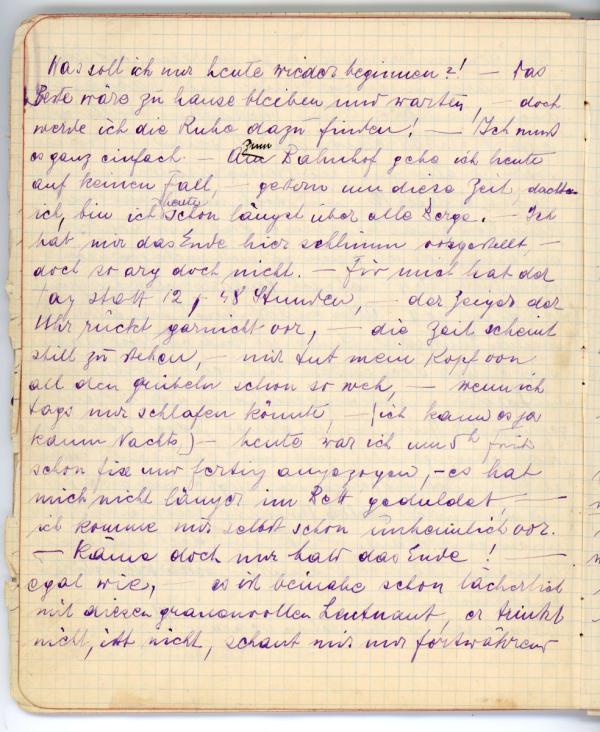 Was soll ich nur heute wieder beginnen?! — Das
Beste wäre zu hause bleiben und warten, — doch
werde ich die Ruhe dazu finden! — Ich muß
es ganz einfach — Zum Bahnhof gehe ich heute
auf keinen Fall, — gestern um diese Zeit, dachte
ich, bin ich heute schon längst über alle Berge. — Ich
hat mir das Ende hier schlimm vorgestellt, —
doch so arg doch nicht. — Für mich hat der
Tag statt 12, 48 Stunden, — der Zeiger der
Uhr rückt garnicht vor, — die Zeit scheint
still zu stehen, — mir tut mein Kopf von
all den grübeln schon so weh, — wenn ich
tags nur schlafen könnte, — (ich kann es ja
kaum Nachts) — heute war ich um 5h früh
schon fix und fertig angezogen, — es hat
mich nicht länger im Bett geduldet, —
ich komme mir selbst schon unheimlich vor.
— Käme doch nur bald das Ende! —
egal wie, — es ist beinahe schon lächerlich
mit diesen grauenvollen Leutnant, er trinkt
nicht, ißt nicht, schaut mir nur fortwährend